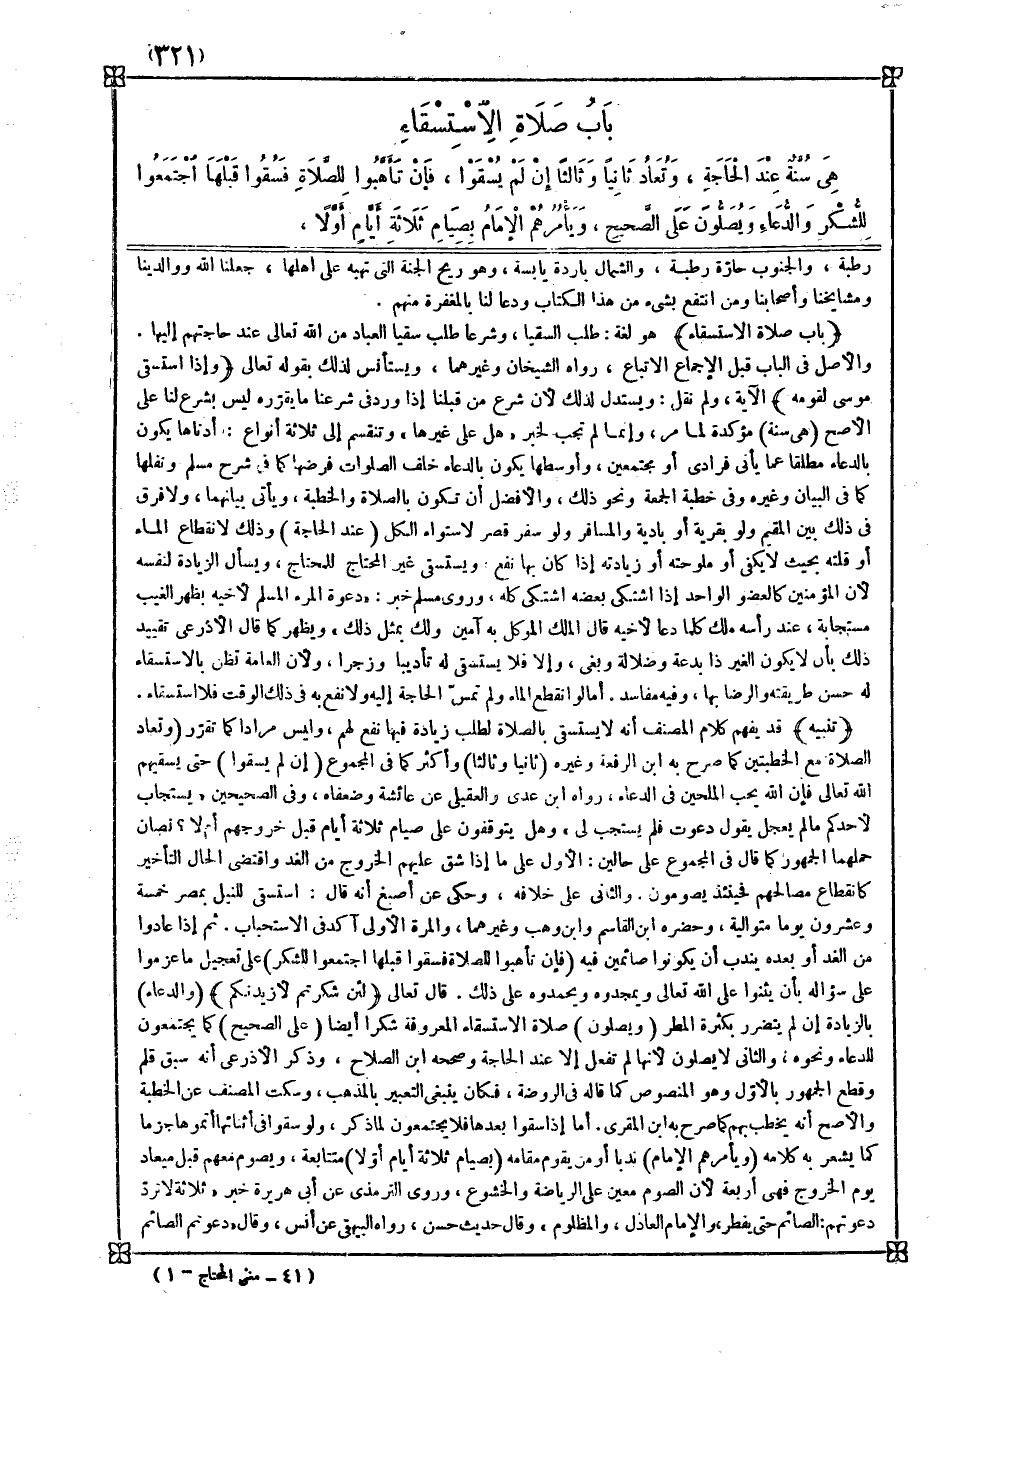 (٣٢١)
بَابُ صَلَاةِ الِاسْتِسْقَاءِ
هِىَ سُنَّةٌ عِنْدَ الْحَاجَةِ ، وَتُعَادُ ثَانِياً وَثَالثاً إِنْ لَمْ يُسْقَوْا ، فَإِنْ تَأَهَّبُوا لِلصَّلَاةِ فَسُقُوا قَبْلَهَا اجْتَمَعُوا
لِلشُّكْرِ وَالدُّعَاءِ وَيُصَلُّونَ عَلَى الصَّحِيحِ ، وَيَأْمُرُهُمْ الْإِمَامُ بِصِيَامِ ثَلَاثَةِ أَيَّامٍ أَوَّلًا ،
رطبة ، والجنوب حارّة رطبة ، والشمال باردة يابسة ، وهو ريح الجنة التى تهبه على أهلها ، جعلنا الله ووالدينا
ومشايخنا وأصحابنا ومن انتفع بشىء من هذا الكتاب ودعا لنا بالمغفرة منهم .
﴿باب صلاة الاستسقاء﴾ هو لغة : طلب السقيا ، وشرعا طلب سقيا العباد من الله تعالى عند حاجتهم إليها .
والأصل فى الباب قبل الإجماع الاتباع ، رواه الشيخان وغيرهما ، ويستأنس لذلك بقوله تعالى ﴿وإذا استسقى
موسى لقومه﴾ الآية ، ولم نقل : ويستدل لذلك لأن شرع من قبلنا إذا ورد فى شرعنا ما يقرّره ليس بشرع لنا على
الأصح (هى سنة) مؤكدة لما مر ، وإنما لم تجب لخبر « هل على غيرها » وتنقسم إلى ثلاثة أنواع : أدناها يكون
بالدعاء مطلقا عما يأتى فرادى أو مجتمعين ، وأوسطها يكون بالدعاء خلف الصلوات فرضها كما فى شرح مسلم ونفلها
كما فى البيان وغيره وفى خطبة الجمعة ونحو ذلك ، والأفضل أن تكون بالصلاة والخطبة ، ويأتى بيانهما ، ولا فرق
فى ذلك بين المقيم ولو بقرية أو بادية والمسافر ولو سفر قصر لاستواء الكل (عند الحاجة) وذلك لانقطاع الماء
أو قلته بحيث لا يكفى أو ملوحته أو زيادته إذا كان بها نفع : ويستسقى غير المحتاج للمحتاج ، ويسأل الزيادة لنفسه
لأن المؤمنين كالعضو الواحد إذا اشتكى بعضه اشتكى كله ، وروى مسلم خبر : « دعوة المرء المسلم لأخيه بظهر الغيب
مستجابة ، عند رأسه ملك كلما دعا لأخيه قال الملك الموكل به آمين ولك بمثل ذلك » ويظهر كما قال الأذرعى تقييد
ذلك بأن لا يكون الغير ذا بدعة وضلالة وبغى ، وإلا فلا يستسقى له تأديبا وزجرا ، ولأن العامة تظن بالاستسقاء
له حسن طريقته والرضا بها ، وفيه مفاسد . أما لو انقطع الماء ولم تمسّ الحاجة إليه ولا نفع به فى ذلك الوقت فلا استسقاء .
﴿تنبيه﴾ قد يفهم كلام المصنف أنه لا يستسقى بالصلاة لطلب زيادة فيها نفع لهم ، وليس مرادا كما تقرّر (وتعاد
الصلاة مع الخطبتين كما صرح به ابن الرفعة وغيره (ثانيا وثالثا) وأكثر كما فى المجموع (إن لم يسقوا) حتى يسقيهم
الله تعالى فإن الله يحب الملحين فى الدعاء ، رواه ابن عدى والعقيلى عن عائشة وضعفاه ، وفى الصحيحين « يستجاب
لأحدكم مالم يعجل يقول دعوت فلم يستجب لى » وهل يتوقفون على صيام ثلاثة أيام قبل خروجهم أم لا ؟ نصان
حملهما الجمهور كما قال فى المجموع على حالين : الأول على ما إذا شق عليهم الخروج من الغد واقتضى الحال التأخير
كانقطاع مصالحهم فحينئذ يصومون . والثانى على خلافه ، وحكى عن أصبغ أنه قال : استسقى للنيل بمصر خمسة
وعشرون يوما متوالية ، وحضره ابن القاسم وابن وهب وغيرهما ، والمرة الأولى آكد فى الاستحباب . ثم إذا عادوا
من الغد أو بعده يندب أن يكونوا صائمين فيه (فإن تأهبوا للصلاة فسقوا قبلها اجتمعوا للشكر) على تعجيل ما عزموا
على سؤاله بأن يثنوا على الله تعالى ويمجدوه ويحمدوه على ذلك . قال تعالى ﴿لئن شكرتم لأزيدنكم﴾ (والدعاء)
بالزيادة إن لم يتضرر بكثرة المطر (ويصلون) صلاة الاستسقاء المعروفة شكرا أيضا (على الصحيح) كما يجتمعون
للدعاء ونحوه ، والثانى لا يصلون لأنها لم تفعل إلا عند الحاجة وصححه ابن الصلاح ، وذكر الأذرعى أنه سبق قلم
وقطع الجمهور بالأوّل وهو المنصوص كما قاله فى الروضة ، فكان ينبغى التعبير بالمذهب ، وسكت المصنف عن الخطبة
والأصح أنه يخطب بهم كما صرح به ابن المقرى . أما إذا سقوا بعدها فلا يجتمعون لما ذكر ، ولو سقوا فى أثنائها أتموها جزما
كما يشعر به كلامه (ويأمرهم الإمام) ندبا أو من يقوم مقامه (بصيام ثلاثة أيام أوّلا) متتابعة ، ويصوم معهم قبل ميعاد
يوم الخروج فهى أربعة لأن الصوم معين على الرياضة والخشوع ، وروى الترمذى عن أبى هريرة خبر « ثلاثة لا تردّ
دعوتهم : الصائم حتى يفطر ، والإمام العادل ، والمظلوم » وقال حديث حسن ، رواه البيهقى عن أنس ، وقال « دعوتم الصائم
(٤١ ــ مغنى المحتاج ــ ١)